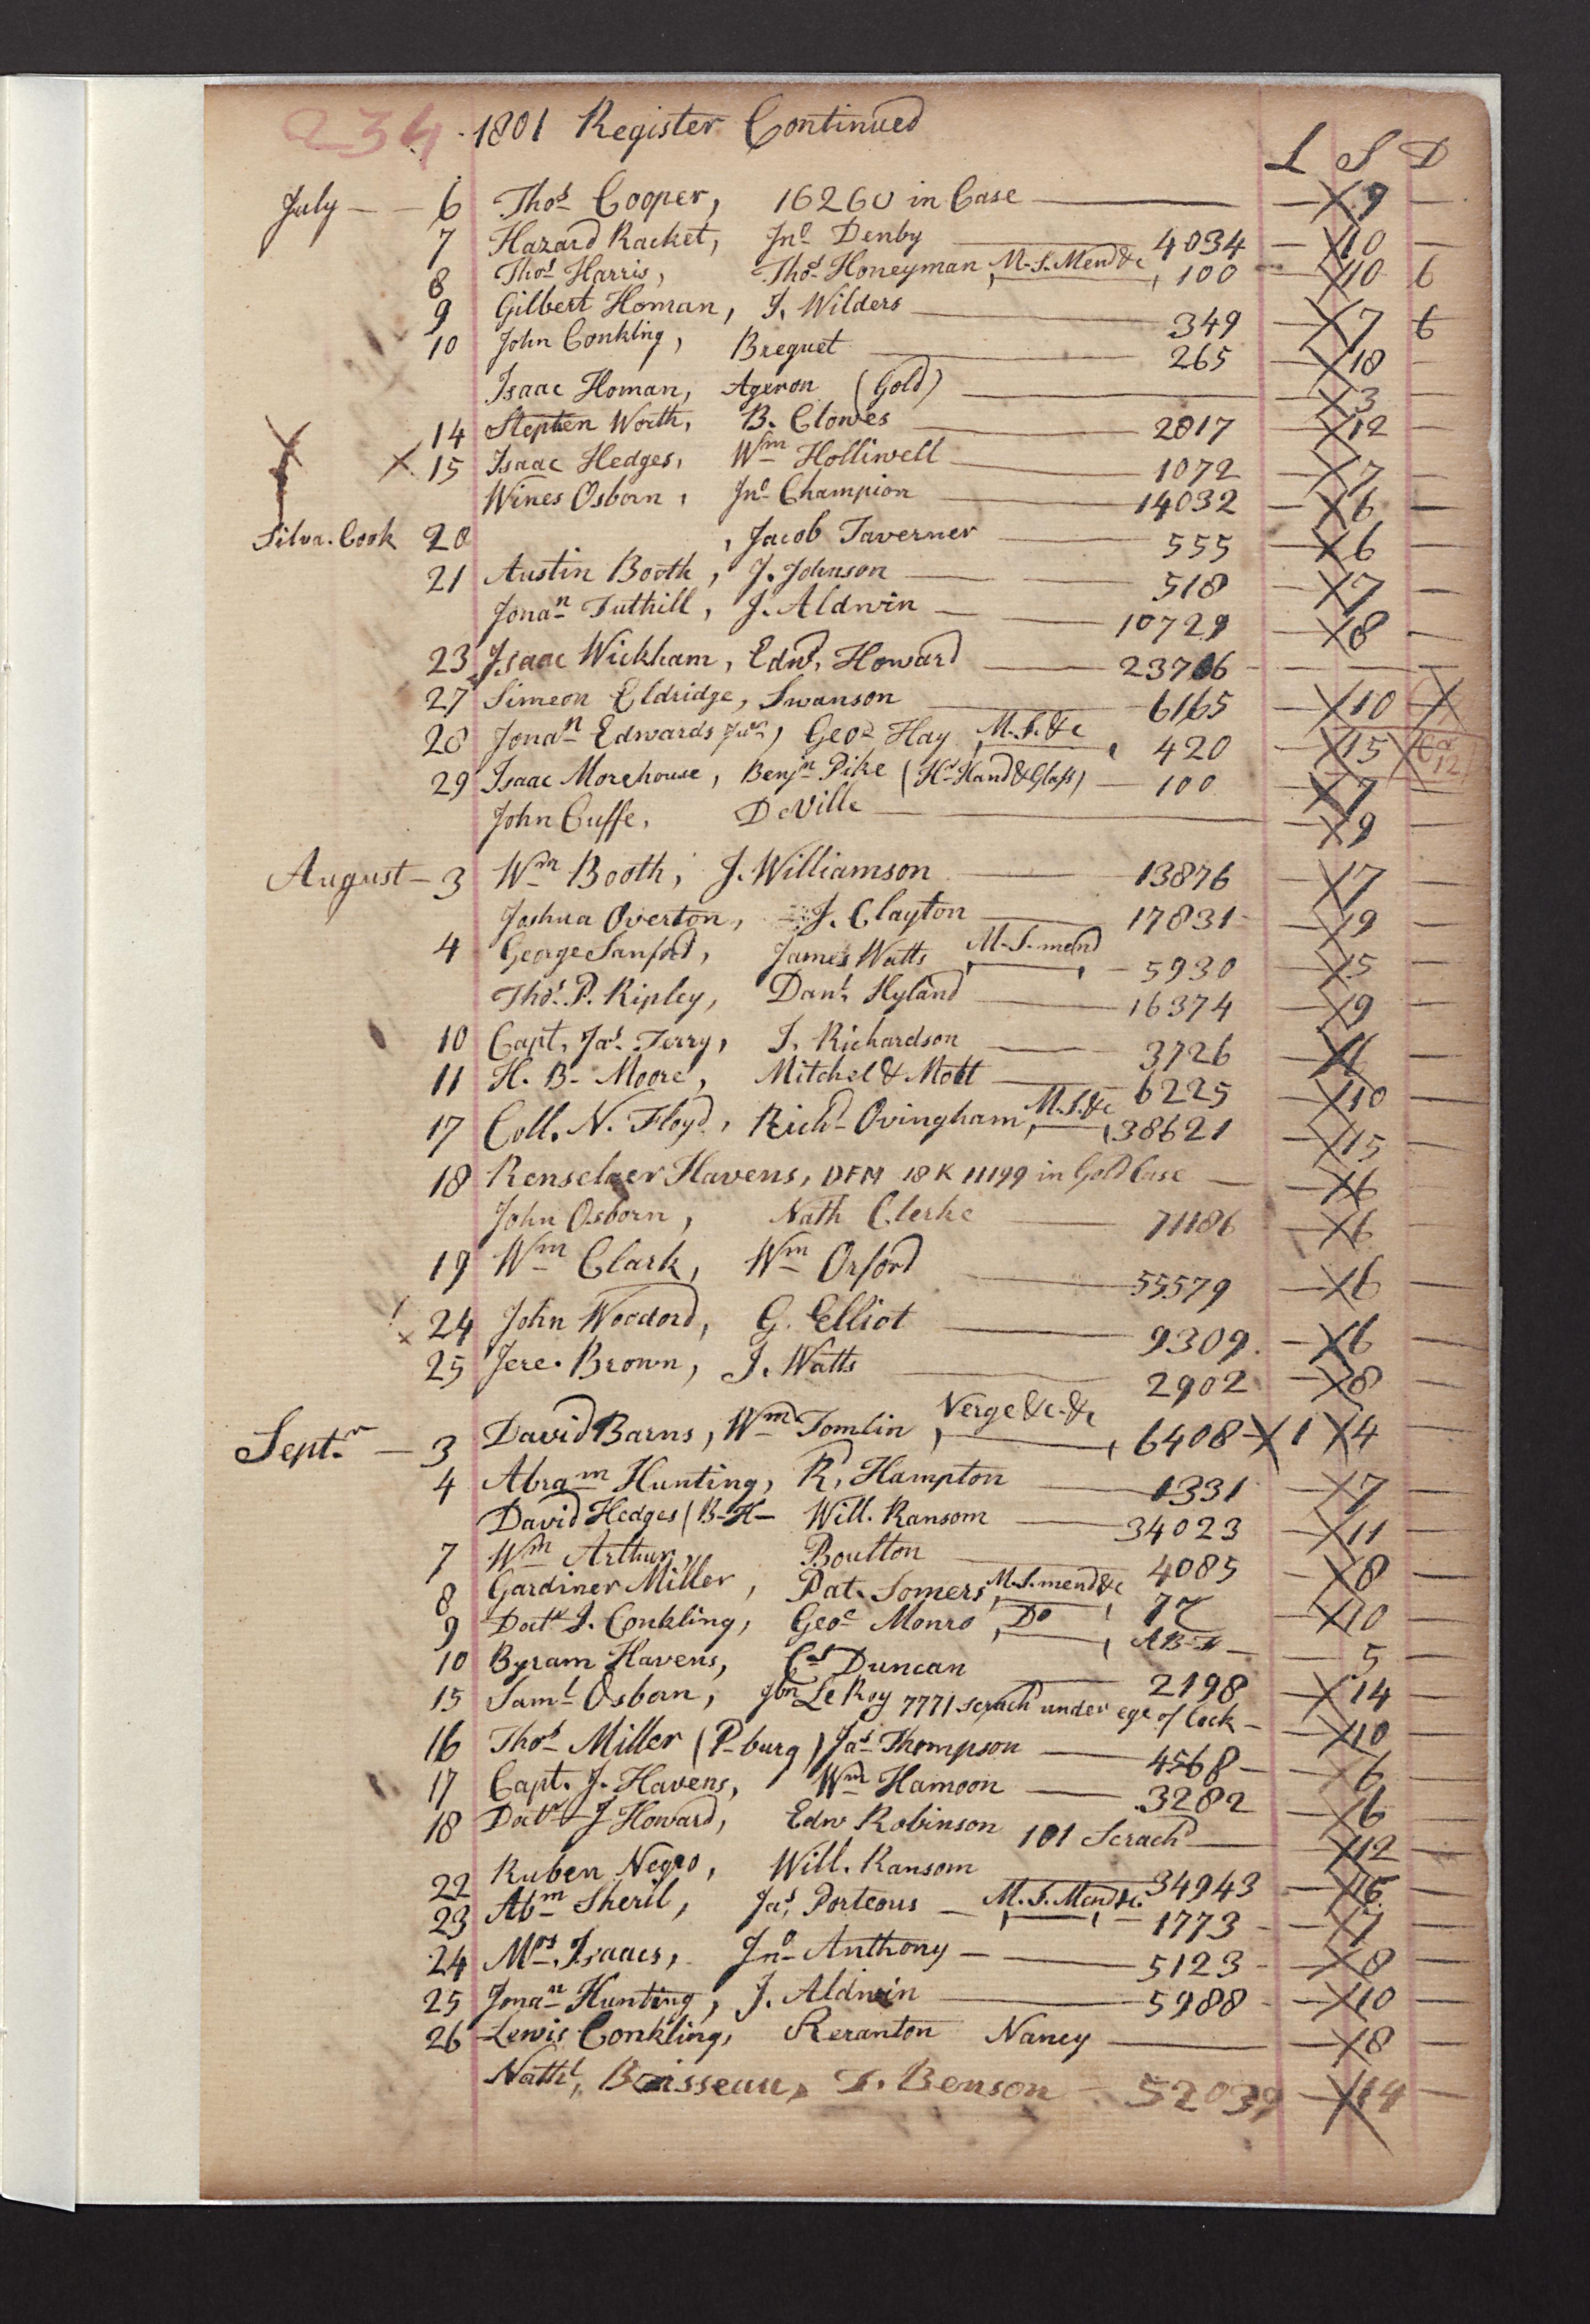 234 1801 Register Continued
L S D
July — 6 Thos Cooper, 16260 in Case — 9 —
7 Hazard Racket, Jno Denby — 4034 — 10 —
8 Thos Harris, Thos Honeyman, M.S. Mend &c, 100 — 10 6
9 Gilbert Homan, J. Wilders — 349 — 7 6
10 John Conkling, Breguet — 265 — 18 —
Isaac Homan, Ageron (Gold) — 3 —
14 Stephen Worth, B. Clowes — 2817 — 12 —
X 15 Isaac Hedges, Wm Holliwell — 1072 — 7 —
Wines Osborn, Jno Champion — 14032 — 6 —
Silva. Cook 20 , Jacob Taverner — 555 — 6 —
21 Austin Booth, J. Johnson — 518 — 7 —
Jonan Tuthill, J. Aldwin — 10729 — 8 —
23 Isaac Wickham, Edwd, Howard — 23766 — — —
27 Simeon Eldridge, Swanson — 6165 — 10
28 Jonan Edwards Junr, Geoe Hay, M.S. &c, 420 — 15
29 Isaac Morehouse, Benjn Pike (Hr Hand & Glass) — 100 — 7 —
John Cuffe, DeVille — 9 —
August — 3 Wm Booth, J. Williamson — 13876 — 7 —
Joshua Overton, J. Clayton — 17831 — 9 —
4 George Sanford, James Watts, M.S. mend, — 5930 — 15 —
Thos. P. Ripley, Danl, Hyland — 16374 — 9 —
10 Capt, Jas. Terry, J. Richardson — 3726 — 6 —
11 H. B. Moore, Mitchel & Mott — 6225 — 10 —
17 Coll. N. Floyd, Richd Ovingham, M.S. &c, 38621 — 15 —
18 Renselaer Havens, DFM 18 K 11199 in Gold Case — 6 —
John Osborn, Nath Clerke — 71186 — 6 —
19 Wm Clark, Wm Orford — 55579 — 6 —
x 24 John Woodord, G. Elliot — 9309. — 6 —
25 Jere. Brown, J. Watts — 2902 — 8 —
Septr. — 3 David Barns, Wm Tomlin, Verge &c. &c, 6408 — 1 4 —
4 Abram Hunting, R, Hampton — 1331 — 7 —
David Hedges (B-H— Will. Ransom — 34023 — 11 —
7 Wm Arthur, Boulton — 4085 — 8 —
8 Gardiner Miller, Pat. Somers, M.S. mend &c, — 10 —
9 Doctr J. Conkling, Geoe Monro, Do, — 5 —
10 Byram Havens, Cs Duncan — 2198 — 14 —
15 Saml Osborn, Jon LeRoy 7771 scrachd under ege of Cock — 10 —
16 Thos Miller (P-burg) Jas Thompson — 4568 — 6 —
17 Capt. J. Havens, Wm Hamoon — 3282 — 6 —
18 Doctr J Howard, Edw Robinson 101 Scrachd — 12 —
22 Ruben Negro, Will. Ransom — 34943 — 6 —
23 Abm Sheril, Jas, Porteous — M.S. Mend &c. — 1773 — 7 —
24 Mrs Isaacs, Jno Anthony — 5123 — 8 —
25 Jonan Hunting, J. Aldwin — 5988 — 10 —
26 Lewis Conkling, Reranton Nancy — 8 —
Nathl, Boisseau, T. Benson — 52039 — 14 —